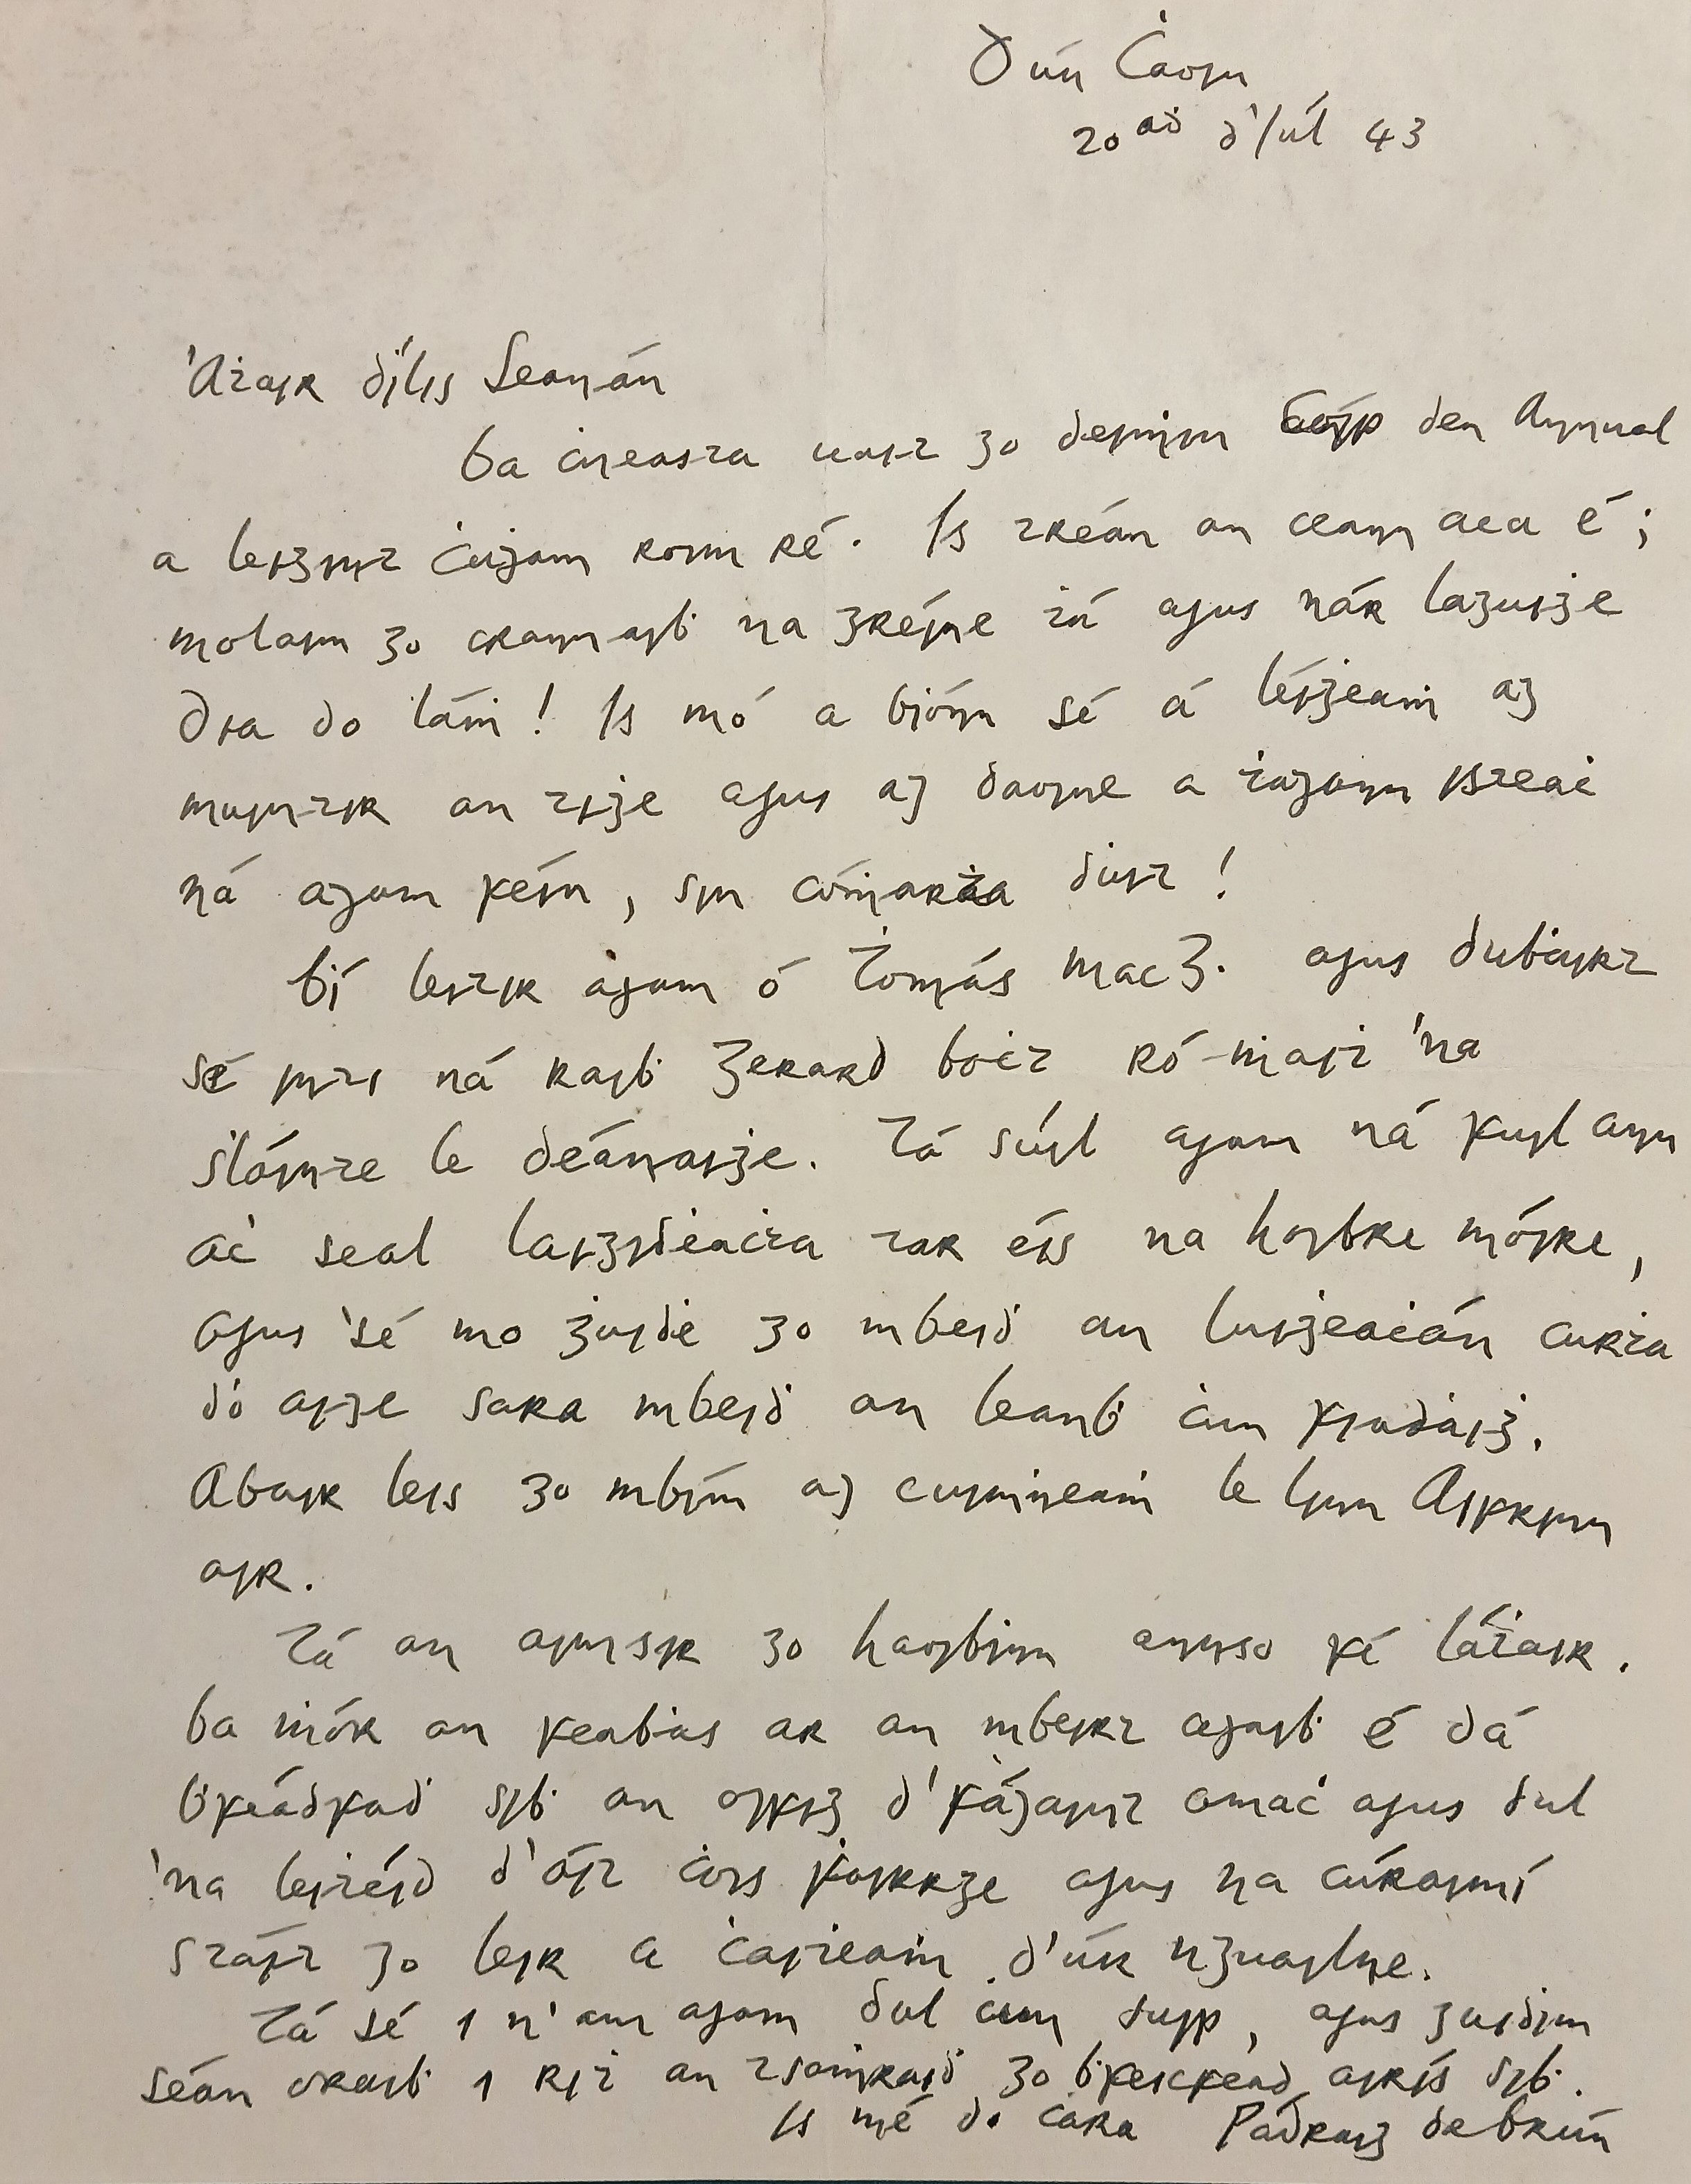 Dún Ċaoin
20ad d'Iúl 43
'Aṫair ḋílis Seanán
Ba ċneasta uait go deiṁin cóip den Annual
a leigint ċuġam roim ré. Is treán an ceann aca é;
molaim go crannaiḃ na gréine ṫú agus nár laguiġe
Dia do láṁ! Is mó a ḃíonn sé á léiġeaṁ ag
muintir an tiġe agus ag daoine a ṫagann isteaċ
ná agam féin, sin cóṁarṫa ḋuit!
Ḃí leitir agam ó Ṫomás Mac G. agus duḃairt
sé inti ná raiḃ Gerard boċt ró-ṁaiṫ 'na
ṡláinte le déanaiġe. Tá súil agam ná fuil ann
aċ seal laigiḋeaċta tar éis na hoibre móire,
agus 'sé mo ġuiḋe go mbeiḋ an luiġeaċán curṫa
ḋó aige sara mbeiḋ an leanḃ ċun fiaḋaiġ.
Abair leis go mbím ag cuiṁneaṁ le linn Aifrinn
air.
Tá an aimsir go haoiḃinn annso fé láṫair.
Ba ṁór an feaḃas ar an mbeirt agaiḃ é dá
ḃféadfaḋ siḃ an oifig d'fágaint amaċ agus dul
'na leiṫéid d'áit ċois ḟairrge agus na cúraimí
stáit go léir a ċaiṫeaṁ d'úr nguailne.
Tá sé i n'am agam dul ċun suip, agus guiḋim
séan oraiḃ i riṫ an tsaṁraiḋ go ḃfeicfead airís siḃ.
Is mé do ċara Pádraig de Brún